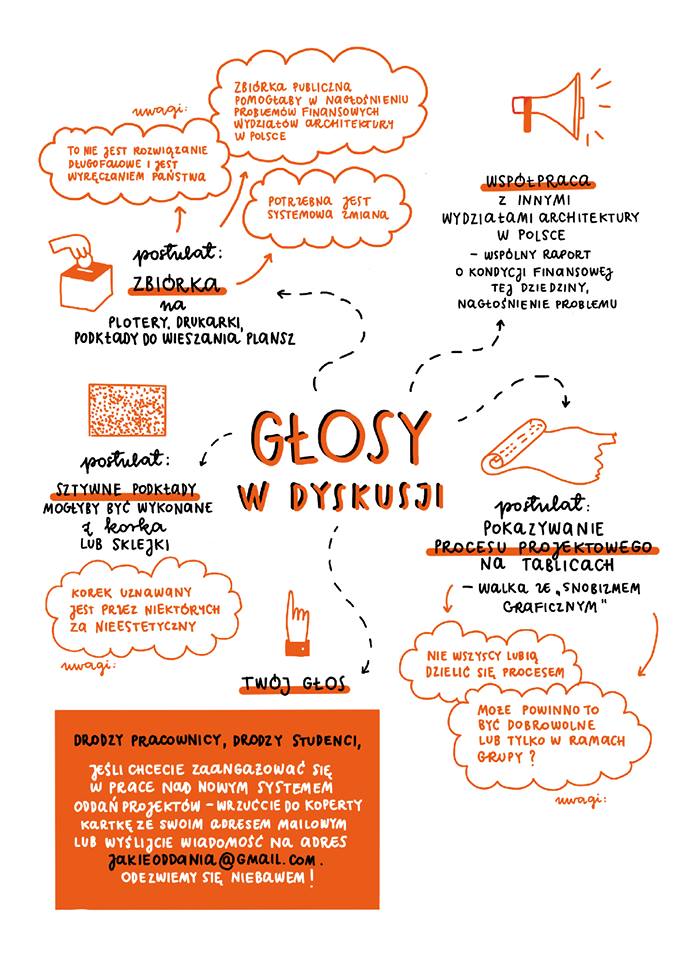 uwagi:
ZBIÓRKA PUBLICZNA
POMOGŁABY W NAGŁOŚNIENIU
PROBLEMÓW FINANSOWYCH
WYDZIAŁÓW ARCHITEKTURY
W POLSCE
TO NIE JEST ROZWIĄZANIE
DŁUGOFALOWE I JEST
WYRĘCZANIEM PAŃSTWA
POTRZEBNA JEST
SYSTEMOWA ZMIANA
postulat:
ZBIÓRKA
na
PLOTERY, DRUKARKI,
PODKŁADY DO WIESZANIA PLANSZ
WSPÓŁPRACA
Z INNYMI
WYDZIAŁAMI ARCHITEKTURY
W POLSCE
- WSPÓLNY RAPORT
O KONDYCJI FINANSOWEJ
TEJ DZIEDZINY,
NAGŁOŚNIENIE PROBLEMU
GŁOSY
W DYSKUSJI
postulat:
SZTYWNE PODKŁADY
MOGŁYBY BYĆ WYKONANE
z korka
LUB SKLEJKI
KOREK UZNAWANY
JEST PRZEZ NIEKTÓRYCH
ZA NIEESTETYCZNY
uwagi:
postulat:
POKAZYWANIE
PROCESU PROJEKTOWEGO
NA TABLICACH
- WALKA ZE „SNOBIZMEM
GRAFICZNYM"
NIE WSZYSCY LUBIĄ
DZIELIĆ SIĘ PROCESEM
MOŻE POWINNO TO
BYĆ DOBROWOLNE
LUB TYLKO W RAMACH
GRUPY?
uwagi:
TWÓJ GŁOS
DRODZY PRACOWNICY, DRODZY STUDENCI,
JEŚLI CHCECIE ZAANGAŻOWAĆ SIĘ
W PRACE NAD NOWYM SYSTEMEM
ODDAŃ PROJEKTÓW - WRZUĆCIE DO KOPERTY
KARTKĘ ZE SWOIM ADRESEM MAILOWYM
LUB WYŚLIJCIE WIADOMOŚĆ NA ADRES
JAKIEODDANIA@GMAIL.COM.
ODEZWIEMY SIĘ NIEBAWEM!